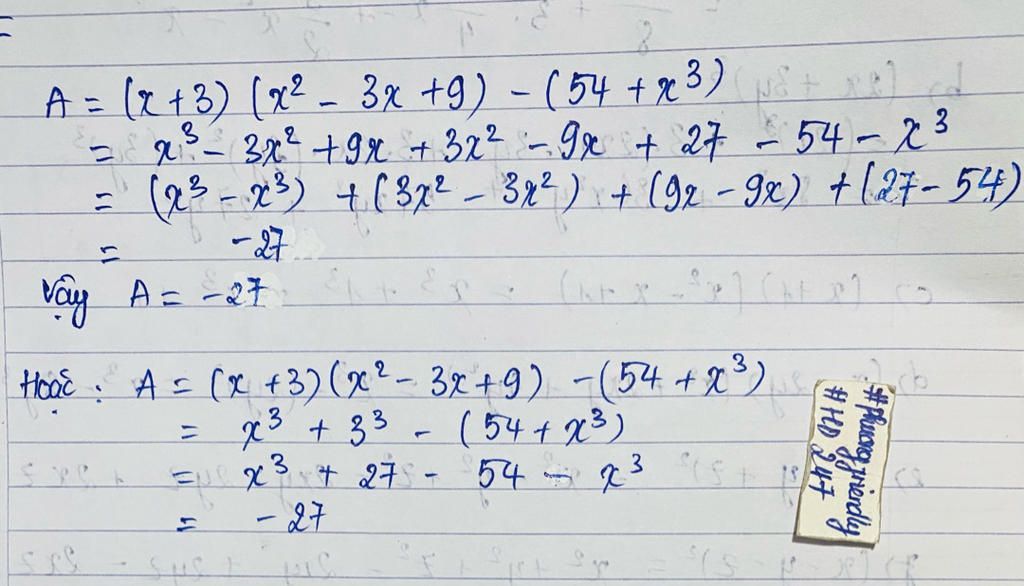 A = (x + 3) (x² - 3x + 9) - (54 + x³)
= x³ - 3x² + 9x + 3x² - 9x + 27 - 54 - x³
= (x³ - x³) + (3x² - 3x²) + (9x - 9x) + (27 - 54)
= -27
Vậy A = -27
Hoặc : A = (x + 3) (x² - 3x + 9) - (54 + x³)
= x³ + 3³ - (54 + x³)
= x³ + 27 - 54 - x³
= -27
#HD 247